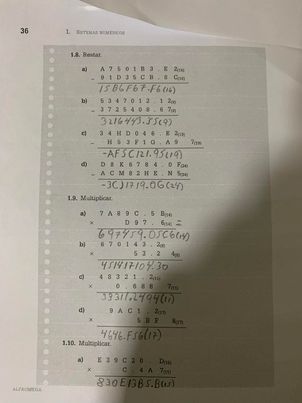 36
1. SISTEMAS NUMÉRICOS
1.8. Restar.
a) A 7 5 0 1 B 3 . E 2(16)
− 9 1 D 3 5 C B . 8 C(16)
15B6F67.F6(16)
b) 5 3 4 7 0 1 2 . 1 2(9)
− 3 7 2 5 4 0 8 . 6 7(9)
c) 3 4 H D 0 4 6 . E 2(19)
− H 5 3 F 1 G . A 9 7(19)
-AF5C121.95(19)
d) D 8 K 6 7 8 4 . 0 F(24)
− A C M 8 2 H K . N 5(24)
-3CJ1719.0G(24)
1.9. Multiplicar.
a) 7 A 8 9 C . 5 B(14)
× D 9 7 . 6(14)
697459.05C6(14)
b) 6 7 0 1 4 3 . 2(8)
× 5 3 . 2 4(8)
451417104.30
c) 4 8 3 2 1 . 2(11)
× 0 . 6 8 8 7(11)
39311.2494(11)
d) 9 A C 1 . 2(17)
× 5 B F 8(17)
4646.F56(17)
1.10. Multiplicar.
a) E 3 9 C 2 0 . D(15)
× C . 4 A 7(15)
830E13B5.B(15)
ALFAOMEGA